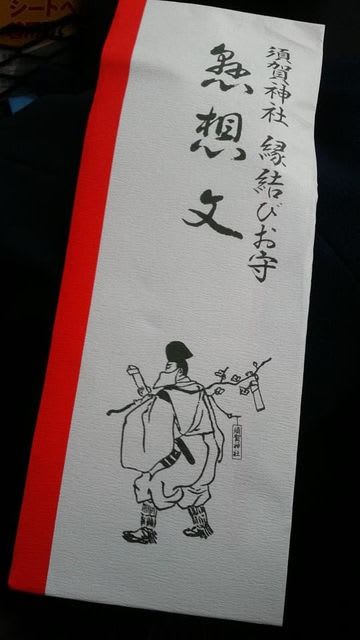 須賀神社 縁結びお守
懸想文
須賀神社
シートへ